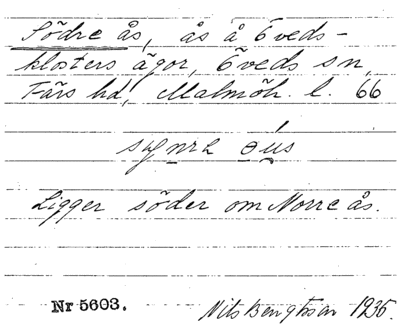 Södre ås, ås å Öveds-
klosters ägor, Öveds sn,
Färs hd, Malmöh. l. 66
Ligger söder om Norre ås.
Nr 5603. Nils Bengtsson 1936.